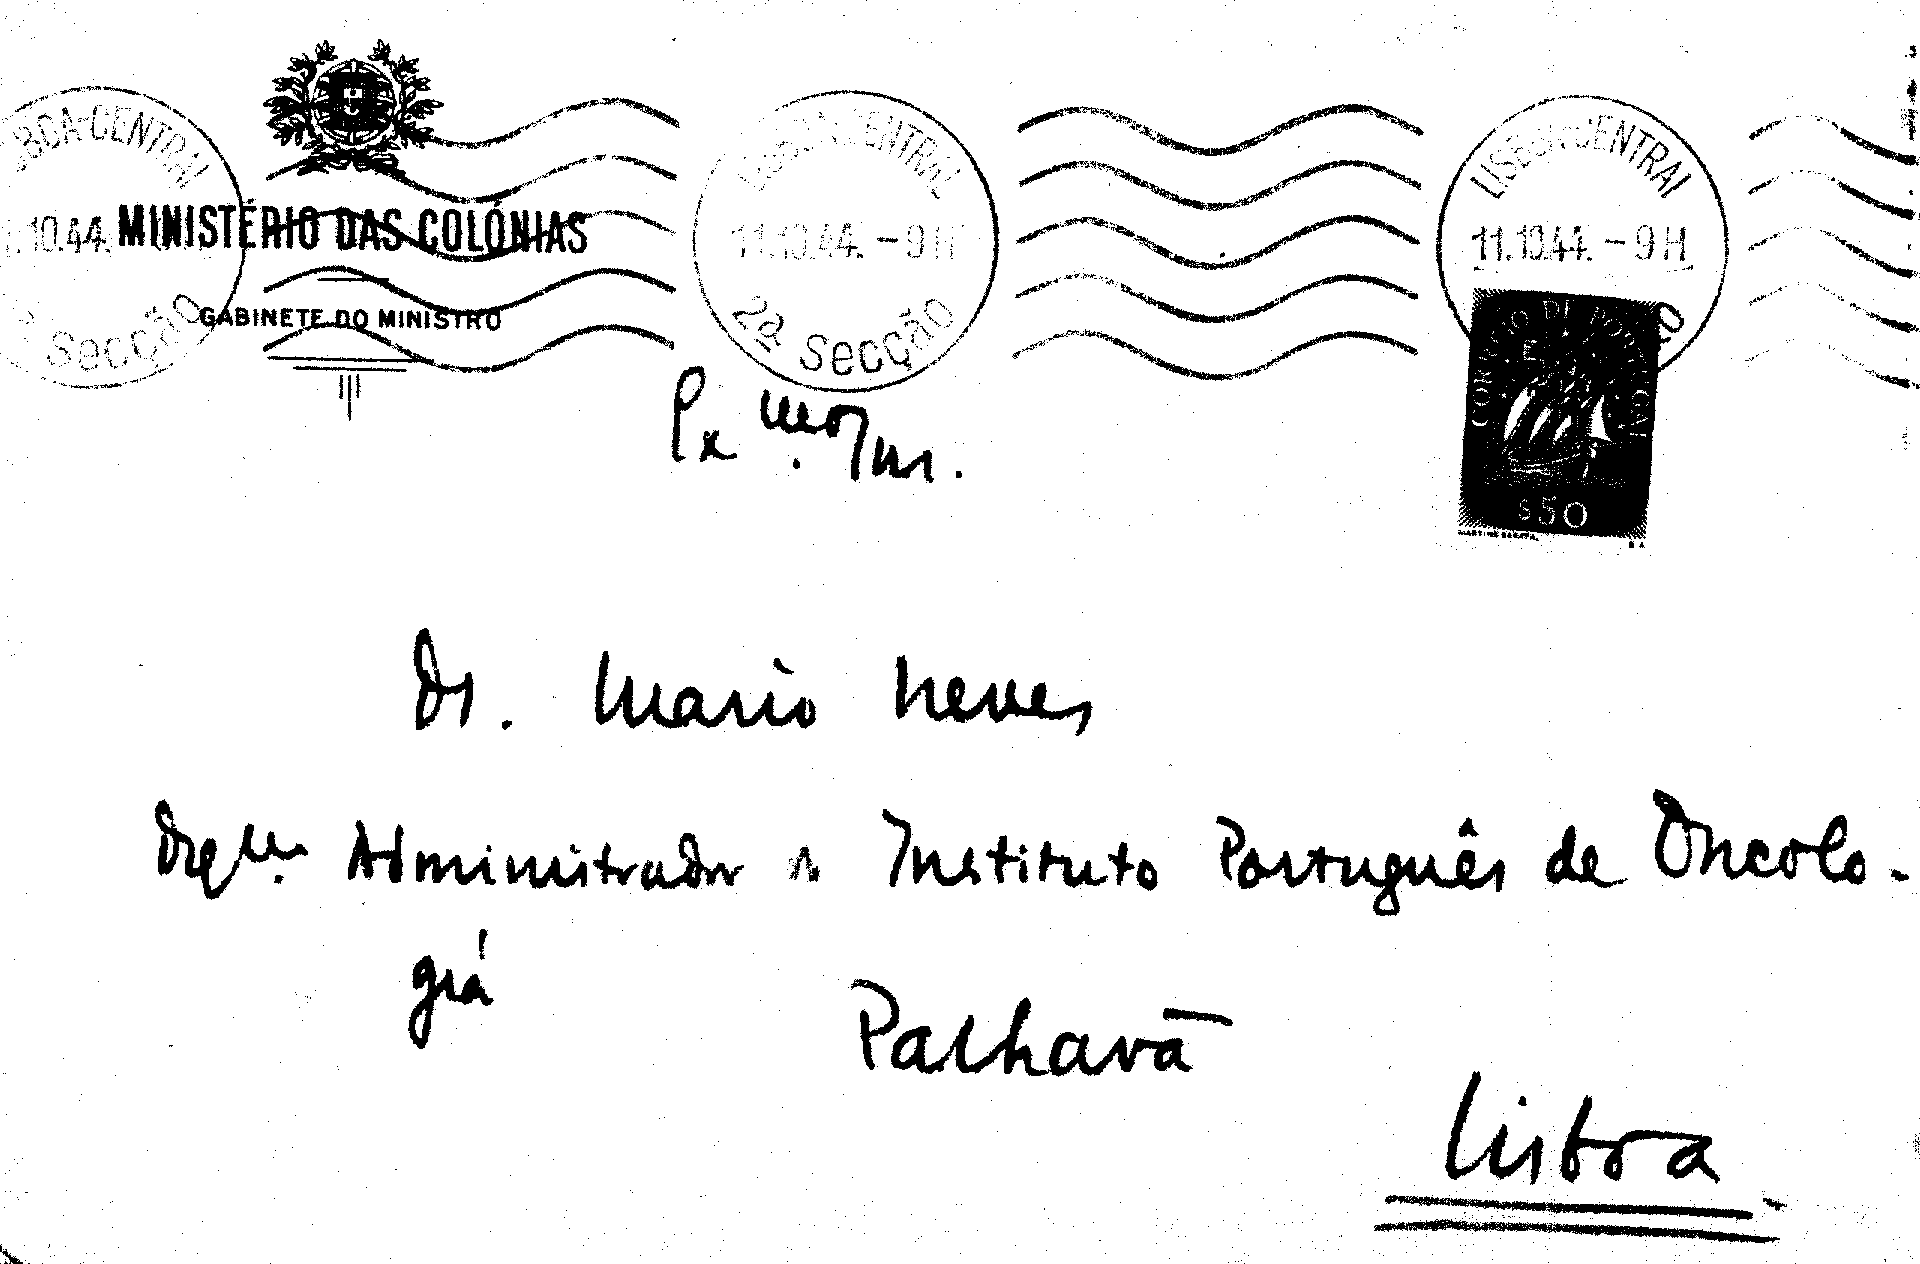 LISBOA-CENTRAL
.10.44.
Secção
MINISTÉRIO DAS COLÓNIAS
GABINETE DO MINISTRO
LISBOA CENTRAL
11.10.44. - 9 H
2ª Secção
LISBOA CENTRAL
11.10.44. - 9 H
CORREIO DE PORTUGAL
$50
Ex.mo Snr.
Dr. Mario Neves
Dig.mo Administrador do Instituto Português de Oncolo-
giá
Palhavã
Lisboa